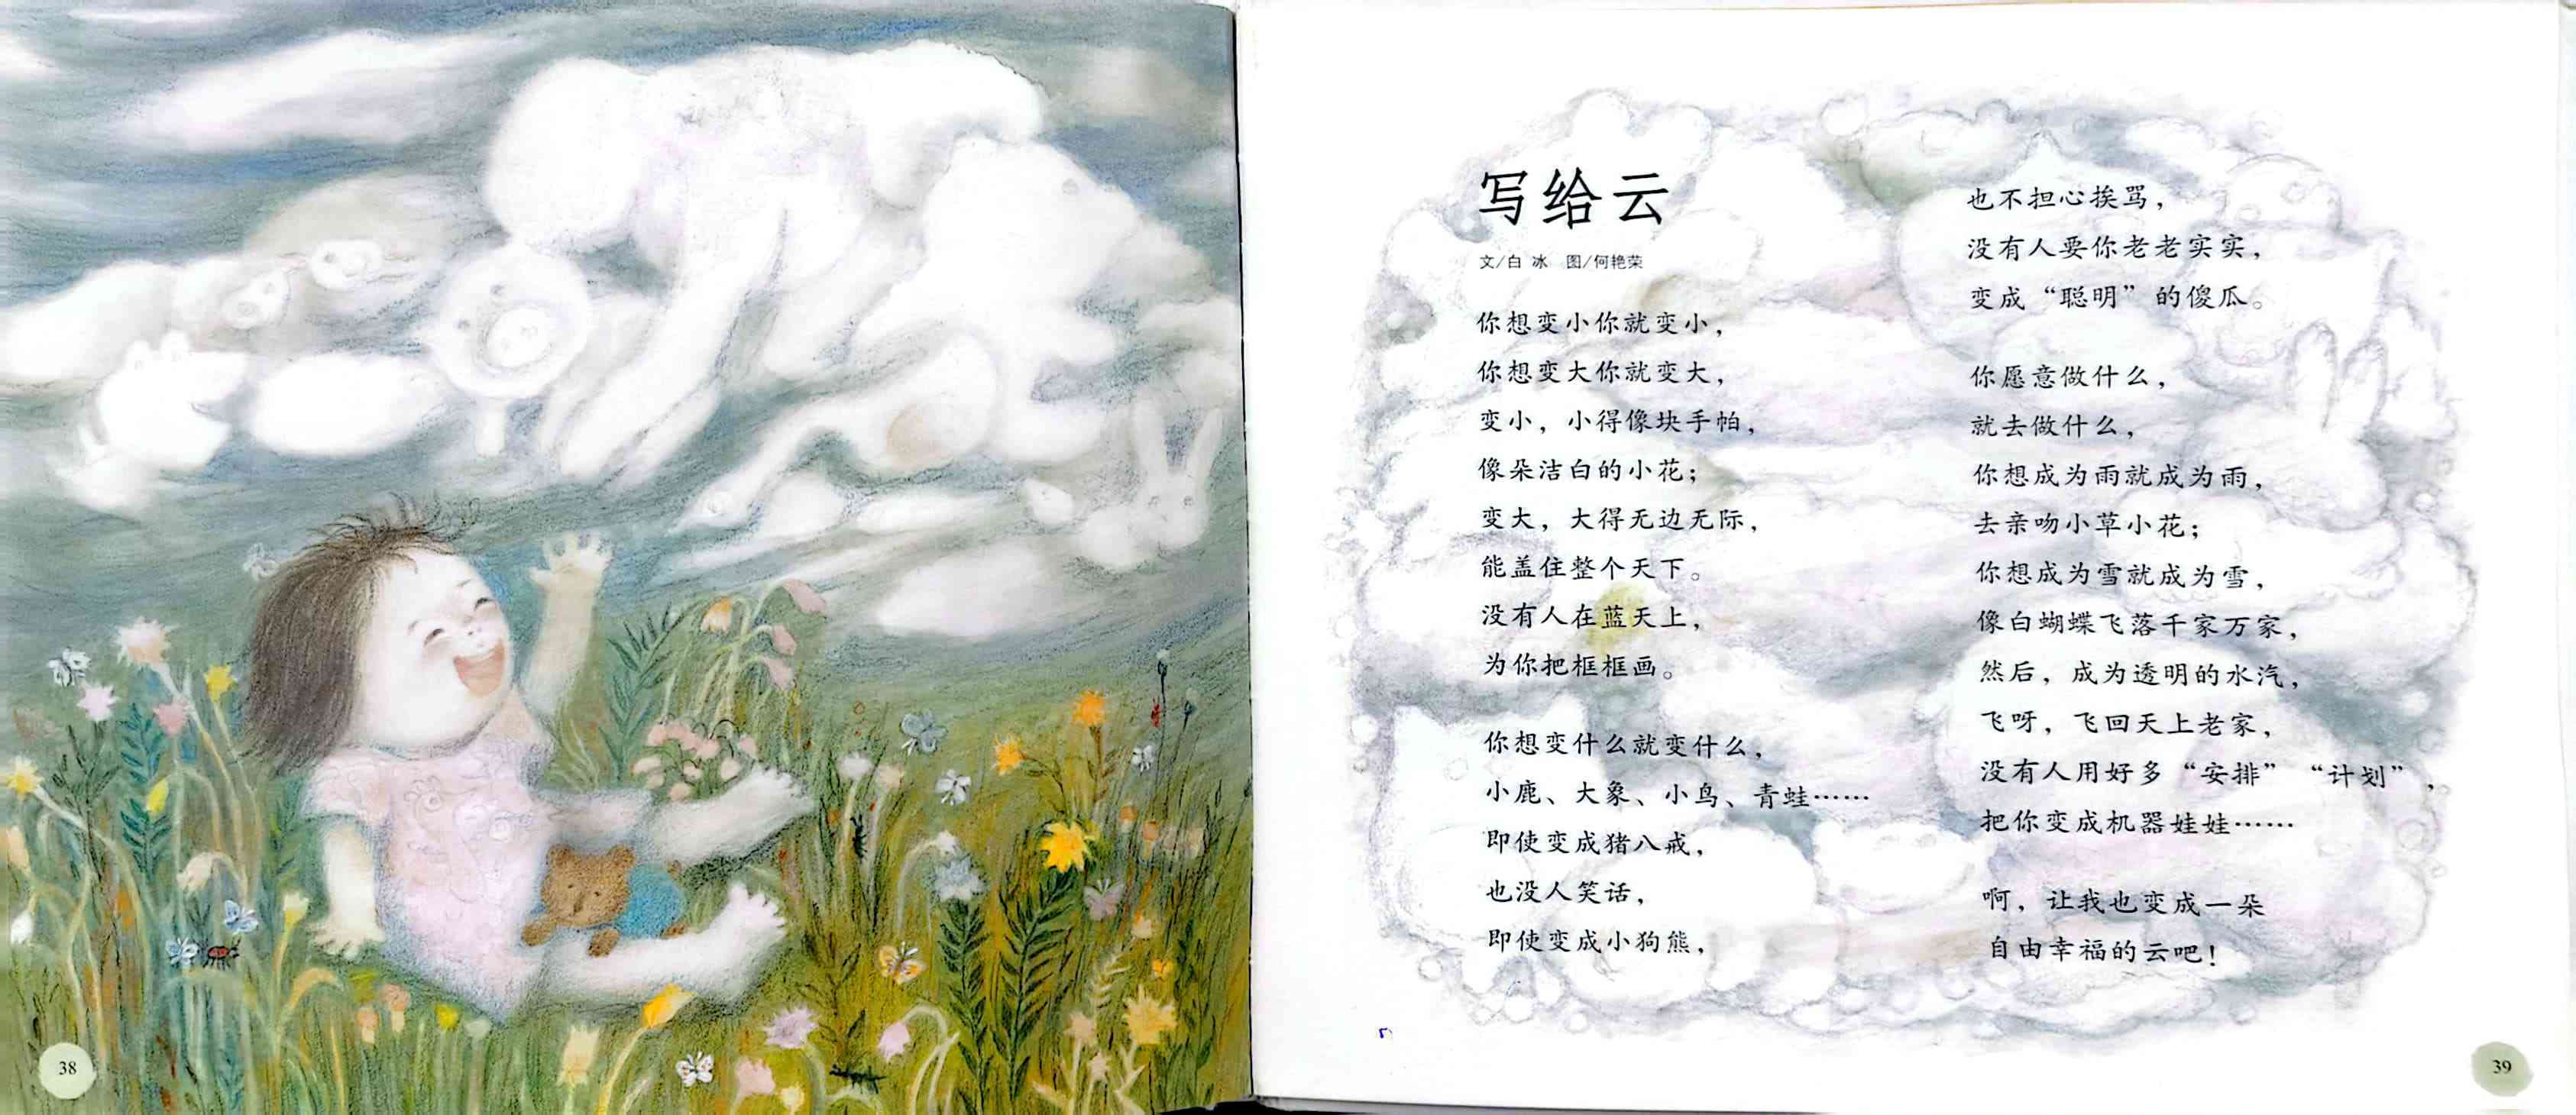 写给云
文/白 冰 图/何艳荣
你想变小你就变小，
你想变大你就变大，
变小，小得像块手帕，
像朵洁白的小花；
变大，大得无边无际，
能盖住整个天下。
没有人在蓝天上，
为你把框框画。
你想变什么就变什么，
小鹿、大象、小鸟、青蛙……
即使变成猪八戒，
也没人笑话，
即使变成小狗熊，
也不担心挨骂，
没有人要你老老实实，
变成“聪明”的傻瓜。
你愿意做什么，
就去做什么，
你想成为雨就成为雨，
去亲吻小草小花；
你想成为雪就成为雪，
像白蝴蝶飞落千家万家，
然后，成为透明的水汽，
飞呀，飞回天上老家，
没有人用好多“安排”“计划”，
把你变成机器娃娃……
啊，让我也变成一朵
自由幸福的云吧！
38
39